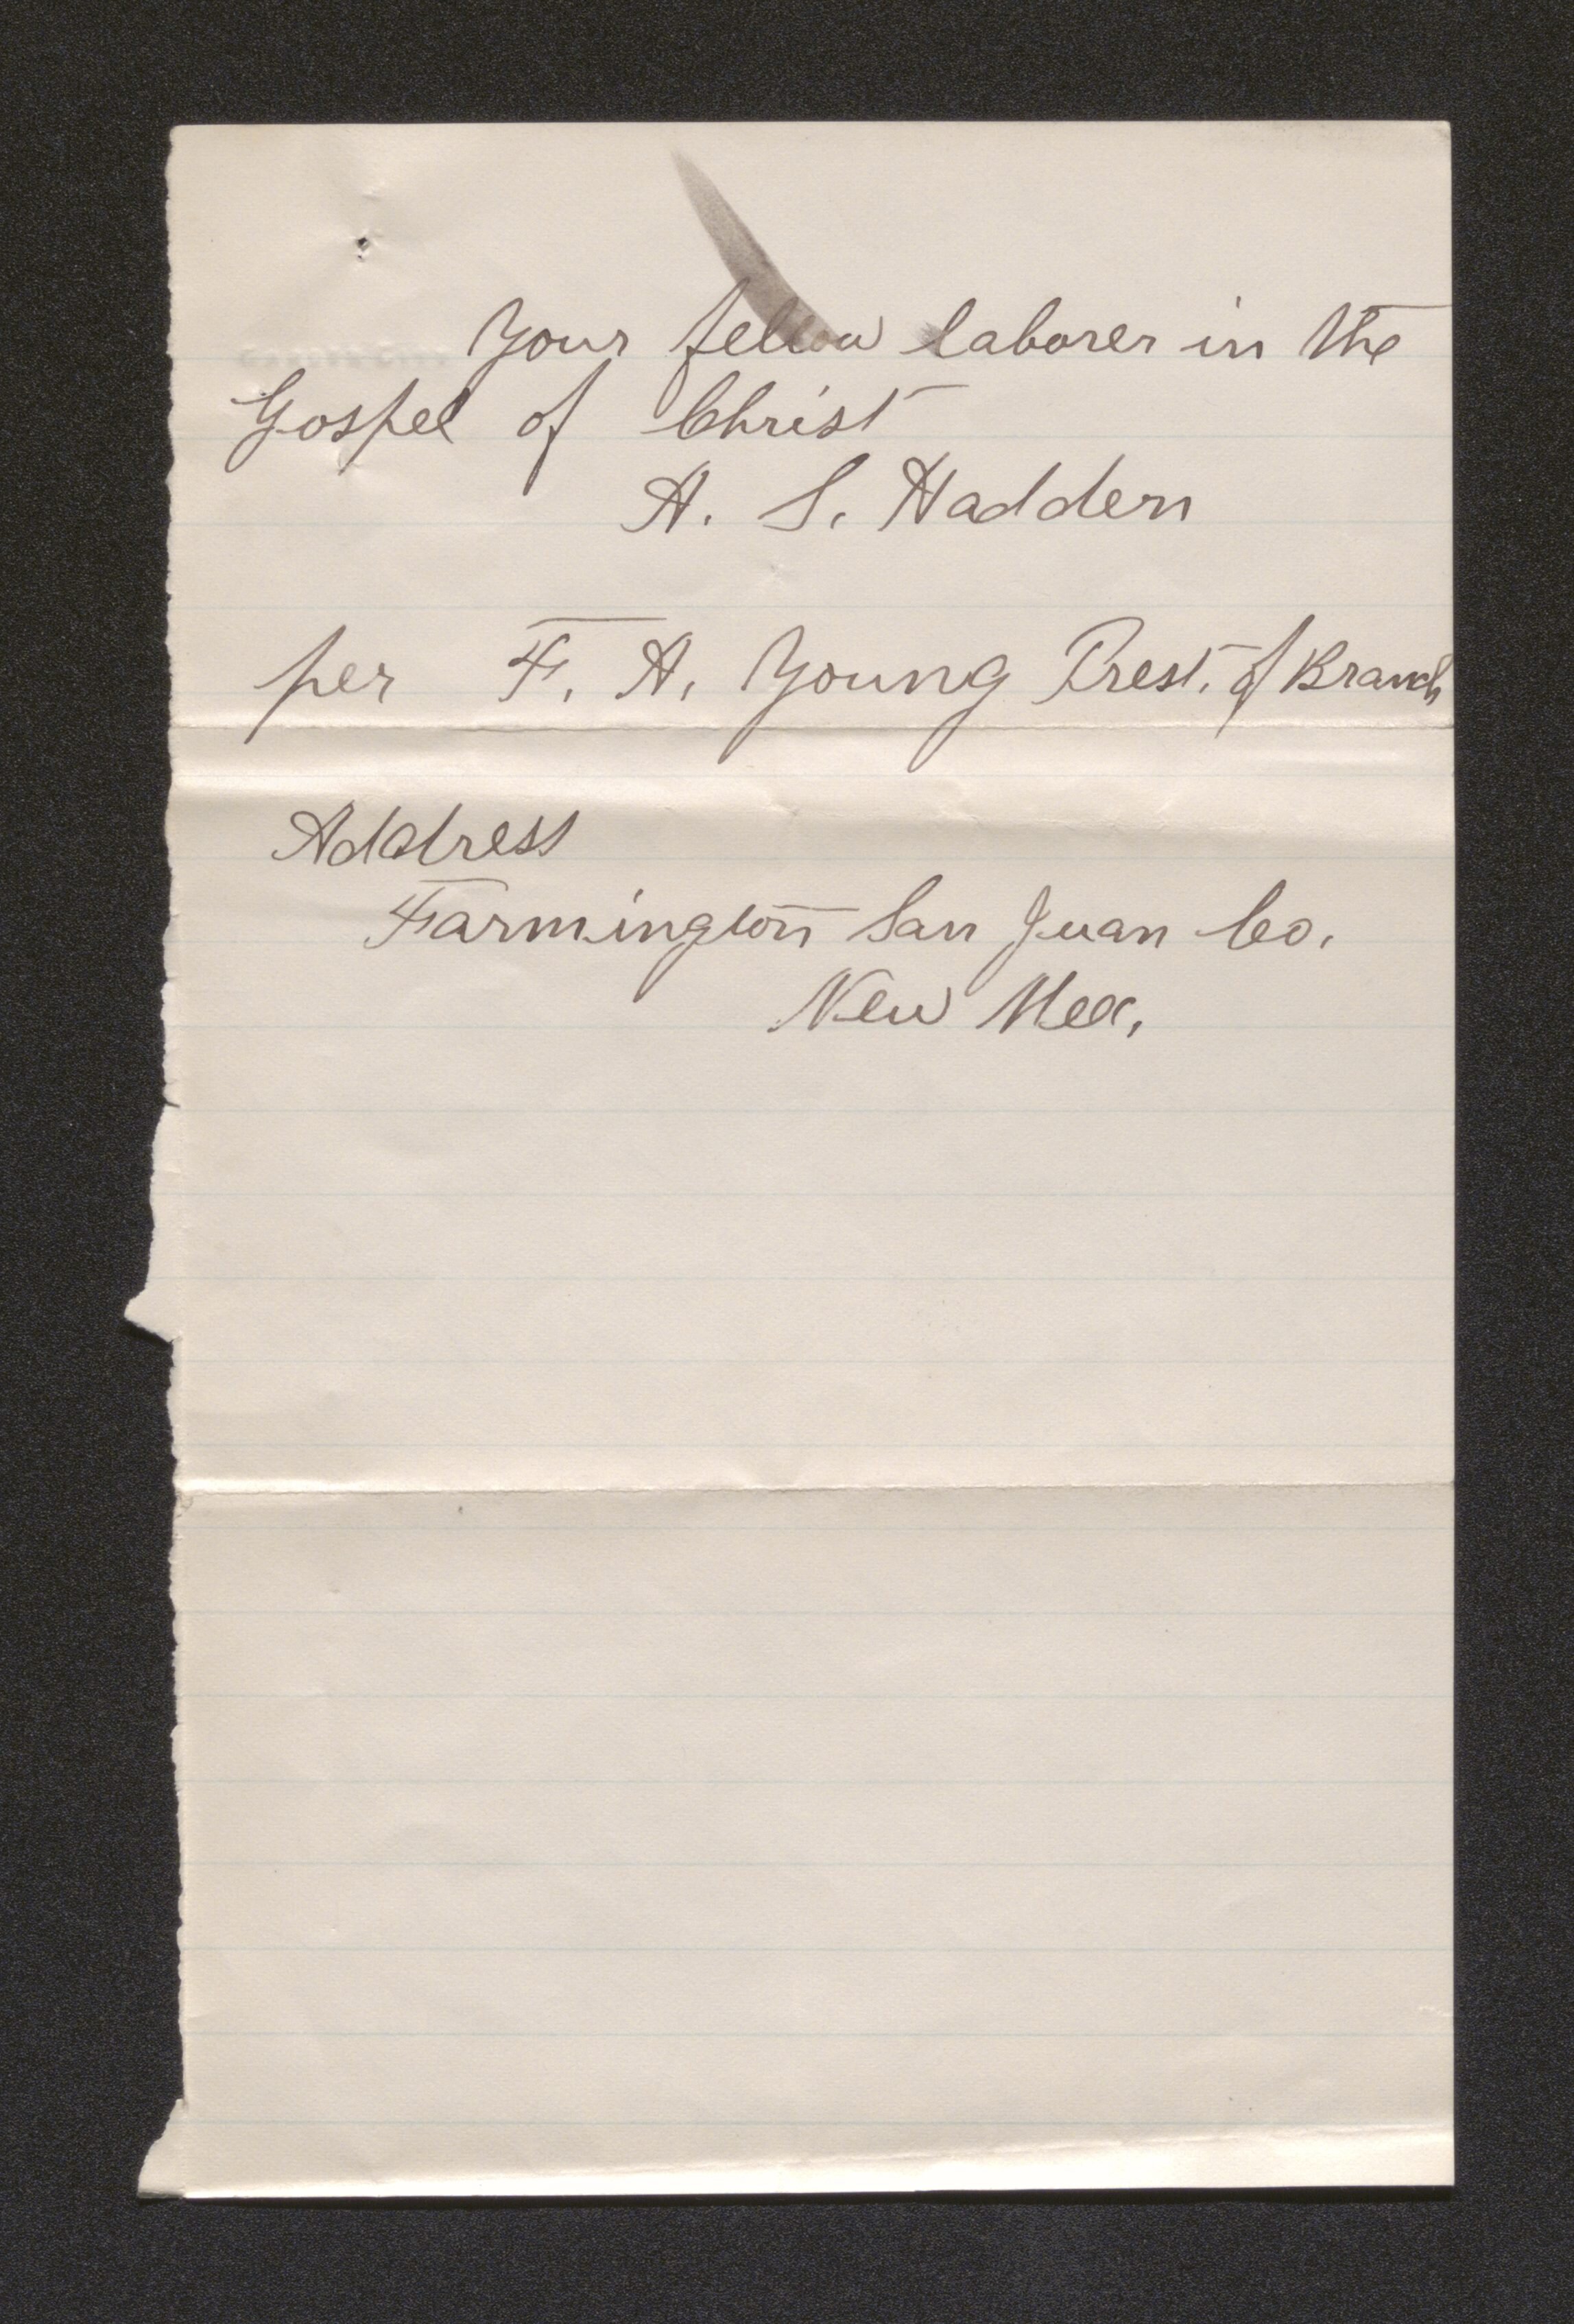 Your fellow laborer in the
Gospel of Christ
A. S. Hadden
per F. A. Young Prest. of Branch
Address
Farmington San Juan Co.
New Mex.